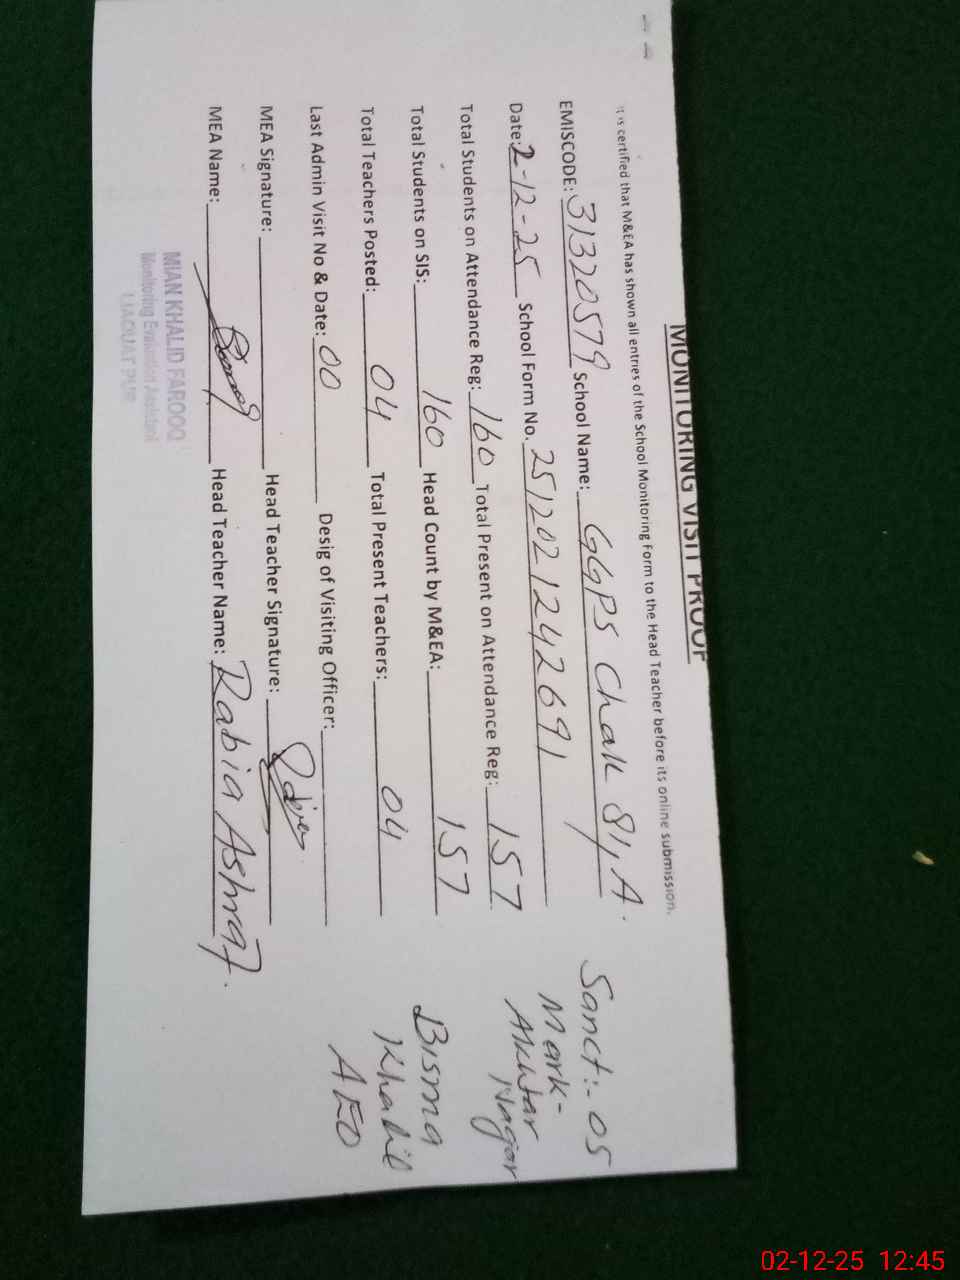 MONITORING VISIT PROOF
It is certified that M&EA has shown all entries of the School Monitoring Form to the Head Teacher before its online submission.
EMISCODE: 31320579 School Name: GGPS Chak 81/A.
Date: 2-12-25 School Form No. 2512021242691
Total Students on Attendance Reg: 160 Total Present on Attendance Reg: 157
Total Students on SIS: 160 Head Count by M&EA: 157
Total Teachers Posted: 04 Total Present Teachers: 04
Last Admin Visit No & Date: 00 Desig of Visiting Officer:
MEA Signature: Head Teacher Signature:
MEA Name: Head Teacher Name: Rabia Ashraf.
MIAN KHALID FAROOQ
Monitoring Evaluation Assistant
LIAQUAT PUR
Sanct:- 05
Mark-
Akhtar
Nagar
Bisma
Khalil
AEO
02-12-25 12:45